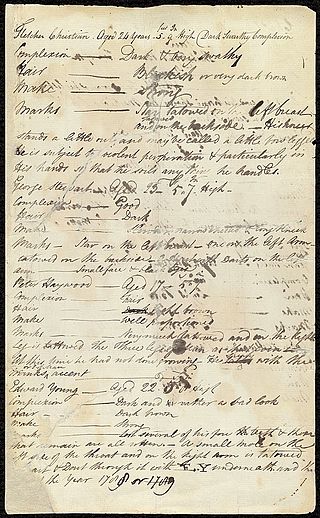 Fletcher Christian. Aged 24 Years - 5.9 High (Dark Swarthy Complexion
Complexion - Dark & very swarthy
Hair - Blackish or very dark brown
Make - Strong
Marks - Star tatowed on left breast
and on the backside - His knees
stands a little out and may be called a little bow legged
He is subject to violent perspiration & particularly in
His hands so that he soils any thing he handles.
George Stewart - Aged 23 5.7 High -
Complexion - Good
Hair - Dark
Make -
Marks - Star on the left breast - one on the left Arm
tatowed on the backside - with Darts on the left
arm - Small face &
Peter Haywood - Aged 17 -
Complexion - Fair
Hair - brown
Make - Well proportioned
Marks - Very much tatowed and on the right
Leg is tattowed the Three Legs of Man
At this time he had not done growing with the
Manks accent
Edward Young - Aged 22 high
Complexion - Dark and rather a bad look
Hair - Dark brown
Make - Strong
Marks - Lost several of his fore teeth & those
that remain are all rotten - A small mole on the
side of the throat and on the right arm is tatowed
& Dart through it with E.Y underneath and the
the Year 1788 or 1789